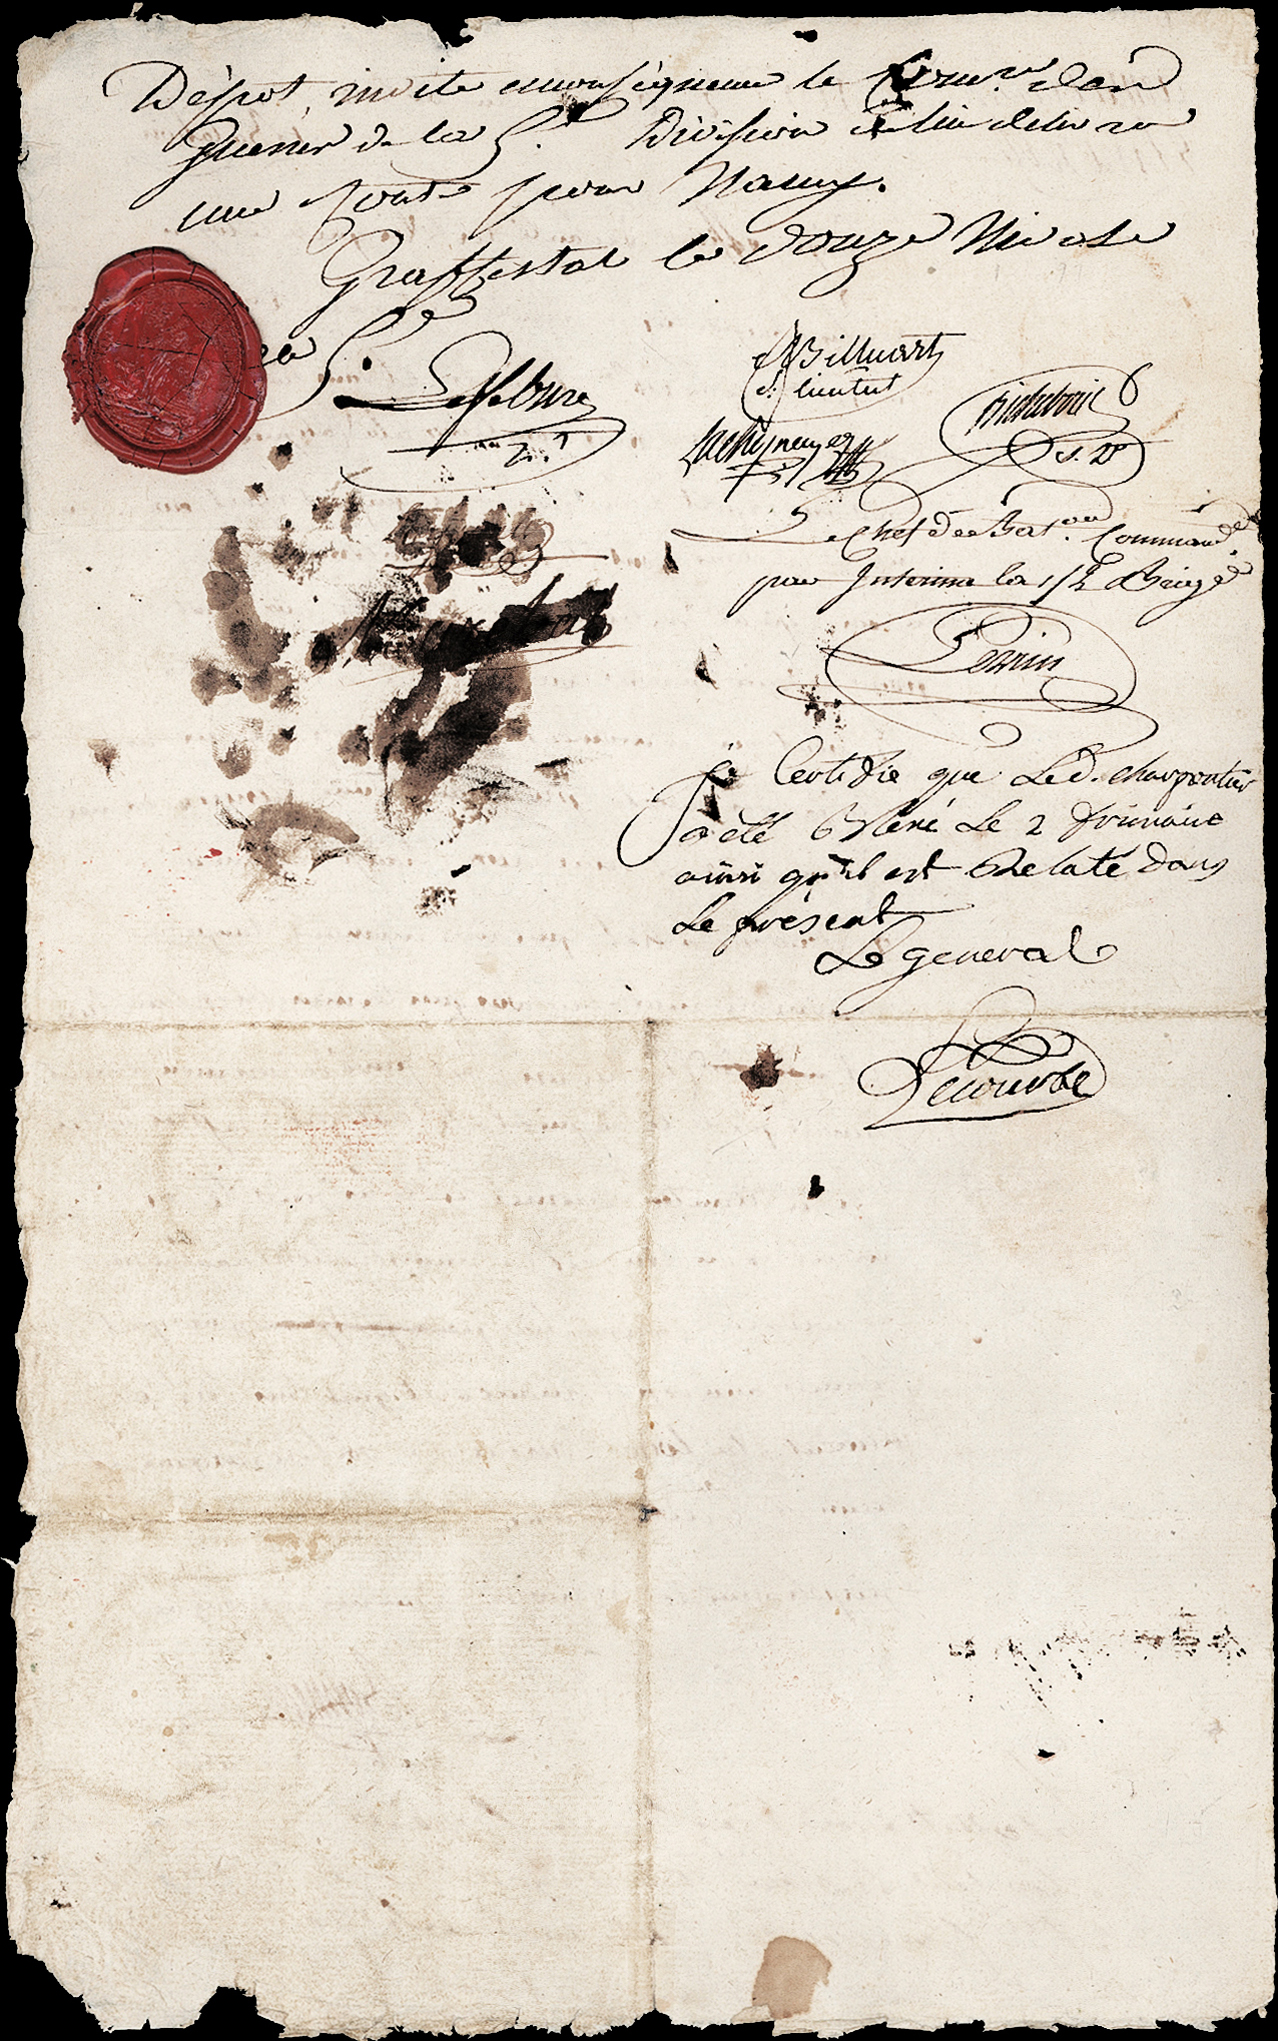 Dépot, invite en conséquence le Comre. des
Guerres de la 5e. Division de lui délivrer
une route pour Nancy.
Graffestal le douze Nivose
an 5.
Lefebvre
Billuart
s. lieutnt
Richebois
s. Lt
Le chef de Baton. Commandt
par Interim la 1/2 Brigde
Perrin
Je Certifie que Led. charpentier
a été Blésé Le 2 frimaire
ainsi qu'il est Relaté dans
Le présent
Le general
Lecourbe